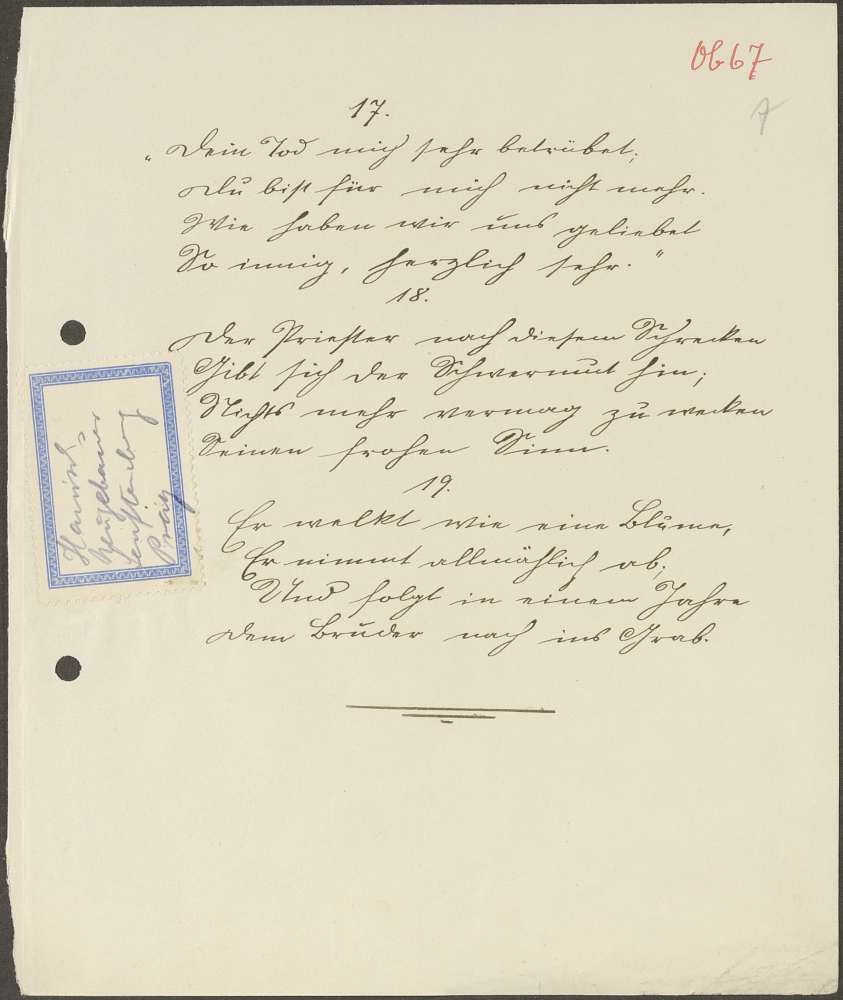 Ob 67
7
17.
„Dein Tod mich sehr betrübet;
Du bist für mich nicht mehr.
Wie haben wir uns geliebet
So innig, herzlich sehr."
18.
Der Priester nach diesem Schrecken
Gibt sich der Schwermut hin;
Nichts mehr vermag zu wecken
Seinen frohen Sinn.
19.
Er welkt wie eine Blume,
Er nimmt allmählich ab;
Und folgt in einem Jahre
Dem Bruder nach ins Grab.
Neugebauer